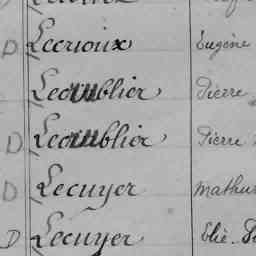 D Lecrioux Eugène
Lecoublier Pierre
D Lecoublier Pierre
D Lecuyer Mathur
D Lecuyer Elie